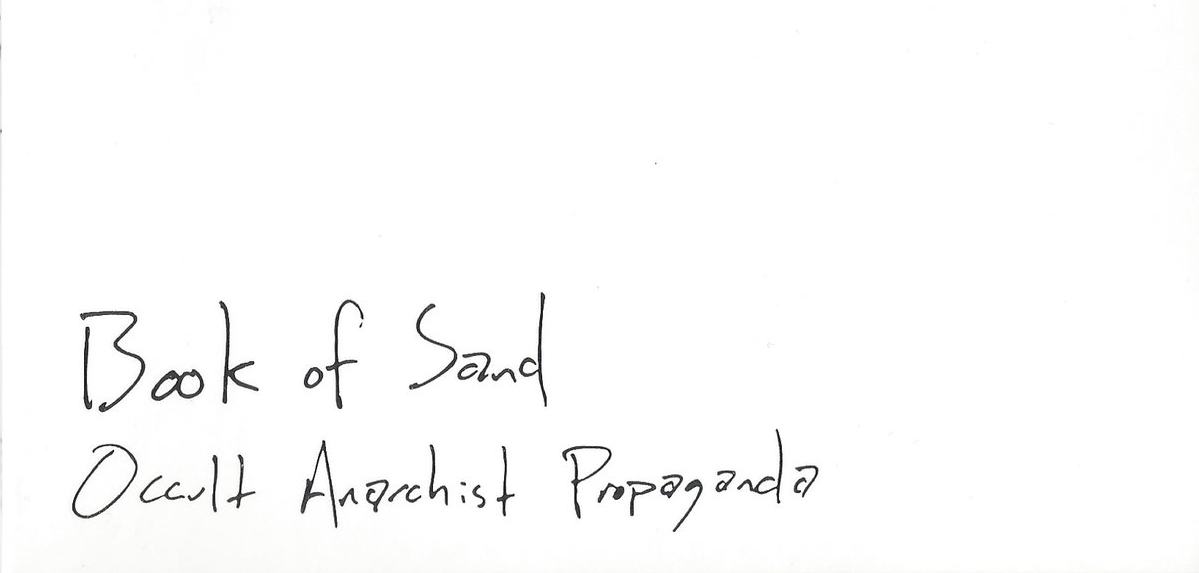 Book of Sand
Occult Anarchist Propaganda